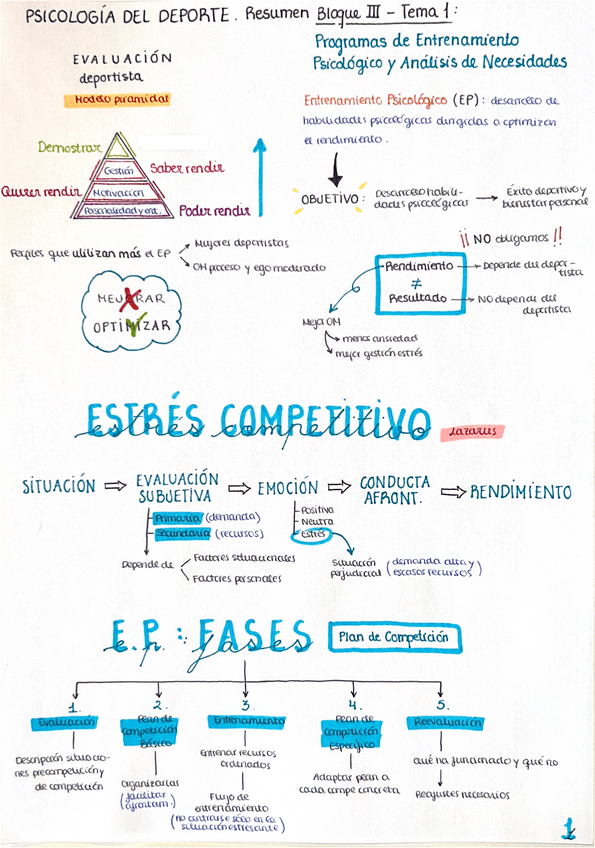 PSICOLOGÍA DEL DEPORTE. Resumen Bloque III - Tema 1:
EVALUACIÓN
deportista
Modelo piramidal
Demostrar
Gestión
Saber rendir
Querer rendir
Motivación
Personalidad y ent.
Poder rendir
Programas de Entrenamiento
Psicológico y Análisis de Necesidades
Entrenamiento Psicológico (EP): desarrollo de
habilidades psicológicas dirigidas a optimizar
el rendimiento.
OBJETIVO: Desarrollo habili-
dades psicológicas
Éxito deportivo y
bienestar personal
Perfiles que utilizan más el EP
Mejores deportistas
OM proceso y ego moderado
MEJORAR
OPTIMIZAR
¡¡ NO obligamos !!
Rendimiento
Depende del depor-
tista
≠
Resultado
NO depende del
deportista
Mejor OM
menos ansiedad
mejor gestión estrés
ESTRÉS COMPETITIVO
estrés competitivo
Lazarus
SITUACIÓN ⇒ EVALUACIÓN SUBJETIVA ⇒ EMOCIÓN ⇒ CONDUCTA AFRONT. ⇒ RENDIMIENTO
Primaria (demanda)
Secundaria (recursos)
Depende de
Factores situacionales
Factores personales
Positiva
Neutra
Estrés
Situación
perjudicial
(demanda alta y
escasos recursos)
E.P.: FASES
e.p.: fases
Plan de Competición
1.
Evaluación
Descripción situacio-
nes precompetición y
de competición
2.
Plan de
Competición
Básico
Organizarlas
(facilitar
afrontam.)
3.
Entrenamiento
Entrenar recursos
ordenados
Flujo de
entrenamiento
(no centrarse sólo en la
situación estresante)
4.
Plan de
Competición
Específico
Adaptar plan a
cada compe concreta
5.
Reevaluación
qué ha funcionado y qué no
Reajustes necesarios
1